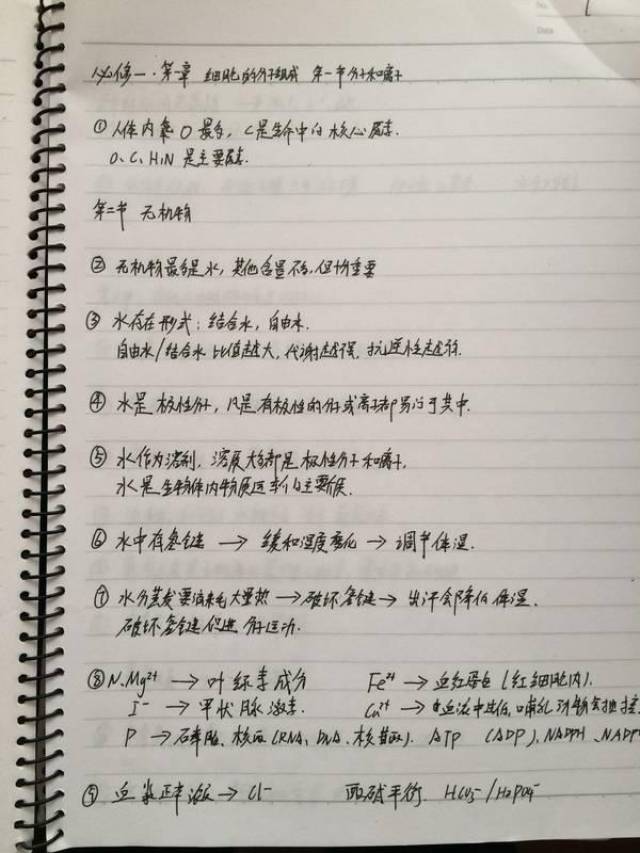 必修一·第一章 细胞的分子组成 第一节 分子和离子
①人体内氧O最多，C是生命中的核心元素.
O、C、H、N 是主要元素.
第二节 无机物
② 无机物最多是水，其他含量不多，但十分重要
③ 水存在形式：结合水，自由水.
自由水/结合水 比值越大，代谢越强，抗逆性越弱.
④ 水是极性分子，凡是有极性的分子或离子都易溶于其中.
⑤ 水作为溶剂，溶质大多都是极性分子和离子，
水是生物体内物质运输的主要介质.
⑥ 水中有氢键 → 缓和温度变化 → 调节体温.
⑦ 水分蒸发要消耗大量热 → 破坏氢键 → 出汗会降低体温.
破坏氢键促进分子运动.
⑧ N、Mg²⁺ → 叶绿素成分 Fe²⁺ → 血红蛋白（红细胞内）.
I⁻ → 甲状腺激素. Ca²⁺ → 血液中过低，哺乳动物会抽搐
P → 磷脂、核酸（RNA、DNA、核苷酸）. ATP （ADP）、NADPH、NADP
⑨ 血浆 → Cl⁻ 酸碱平衡 HCO₃⁻/H₂PO₄⁻